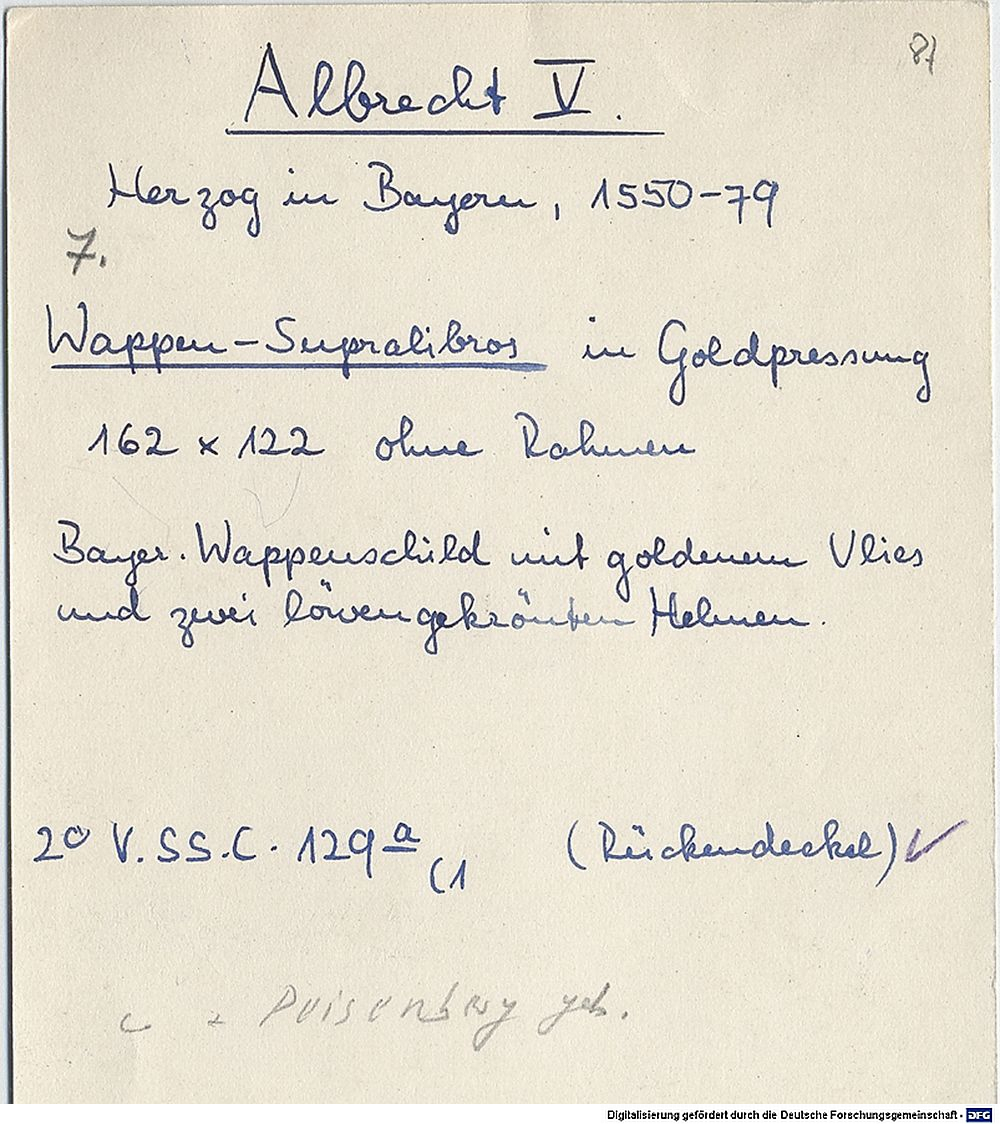 Albrecht V.
Herzog in Bayern, 1550-79
7.
Wappen-Supralibros in Goldpressung
162 x 122 ohne Rahmen
Bayer. Wappenschild mit goldenem Vlies
und zwei löwengekrönten Helmen.
2° V.SS.C. 129a (Rückendeckel) ✓
(1
geb.
Digitalisierung gefördert durch die Deutsche Forschungsgemeinschaft - DFG